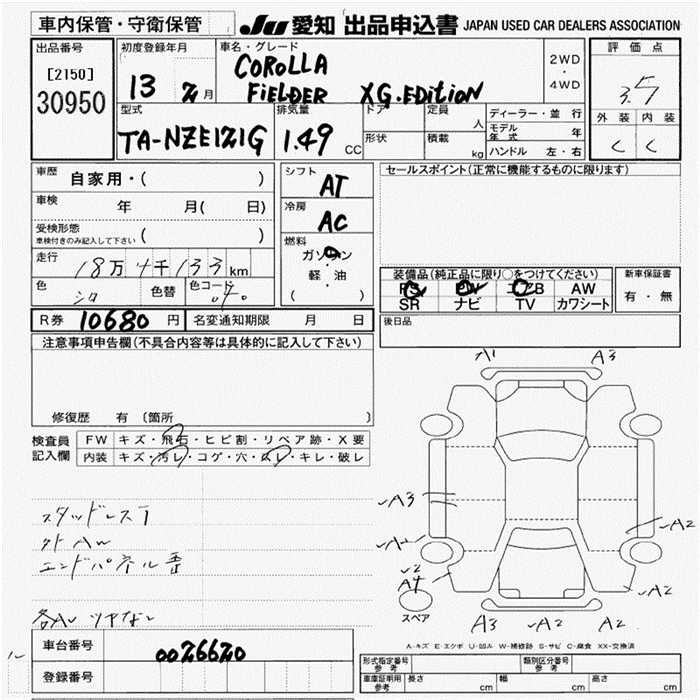 車内保管・守衛保管
JU 愛知 出品申込書 JAPAN USED CAR DEALERS ASSOCIATION
出品番号
[2150]
30950
初度登録年月
13 月
車名・グレード
COROLLA
FIELDER XG.EDITION
2WD
・
4WD
評価点
3.5
外装 内装
C C
型式
TA-NZE121G
排気量
1.49 CC
ドア
形状
定員
人
積載
kg
ディーラー・並 行
モデル年式 年
ハンドル 左・右
車歴
自家用・( )
車検
年 月( 日)
受検形態
車検付きのみ記入して下さい ( )
走行
18万4千133km
色
シロ
色替
色コード
040
シフト
AT
冷房
AC
燃料
ガソリン
軽・油
( )
セールスポイント(正常に機能するものに限ります)
装備品(純正品に限り○をつけてください)
PS PW エアB AW
SR ナビ TV カワシート
新車保証書
有・無
R券 10680 円
名変通知期限 月 日
後日品
注意事項申告欄(不具合内容等は具体的に記入して下さい)
修復歴 有 (箇所 )
検査員
記入欄
FW キズ・飛石・ヒビ割・リペア跡・X要
内装 キズ・汚レ・コゲ・穴・ムレ・キレ・破レ
スタッドレスT
外AW
エンドパネル歪
各AW ツヤなし
A1 A3
A3
A2
A2
A4
A2
スペア
A3 A2 A2
A-キズ E-エクボ U-凹み W-補修跡 S-サビ C-腐食 XX-交換済
車台番号
0026620
登録番号
形式指定番号
参考
類別区分番号
参考
車庫証明用
参考
長さ cm
幅 cm
高さ cm